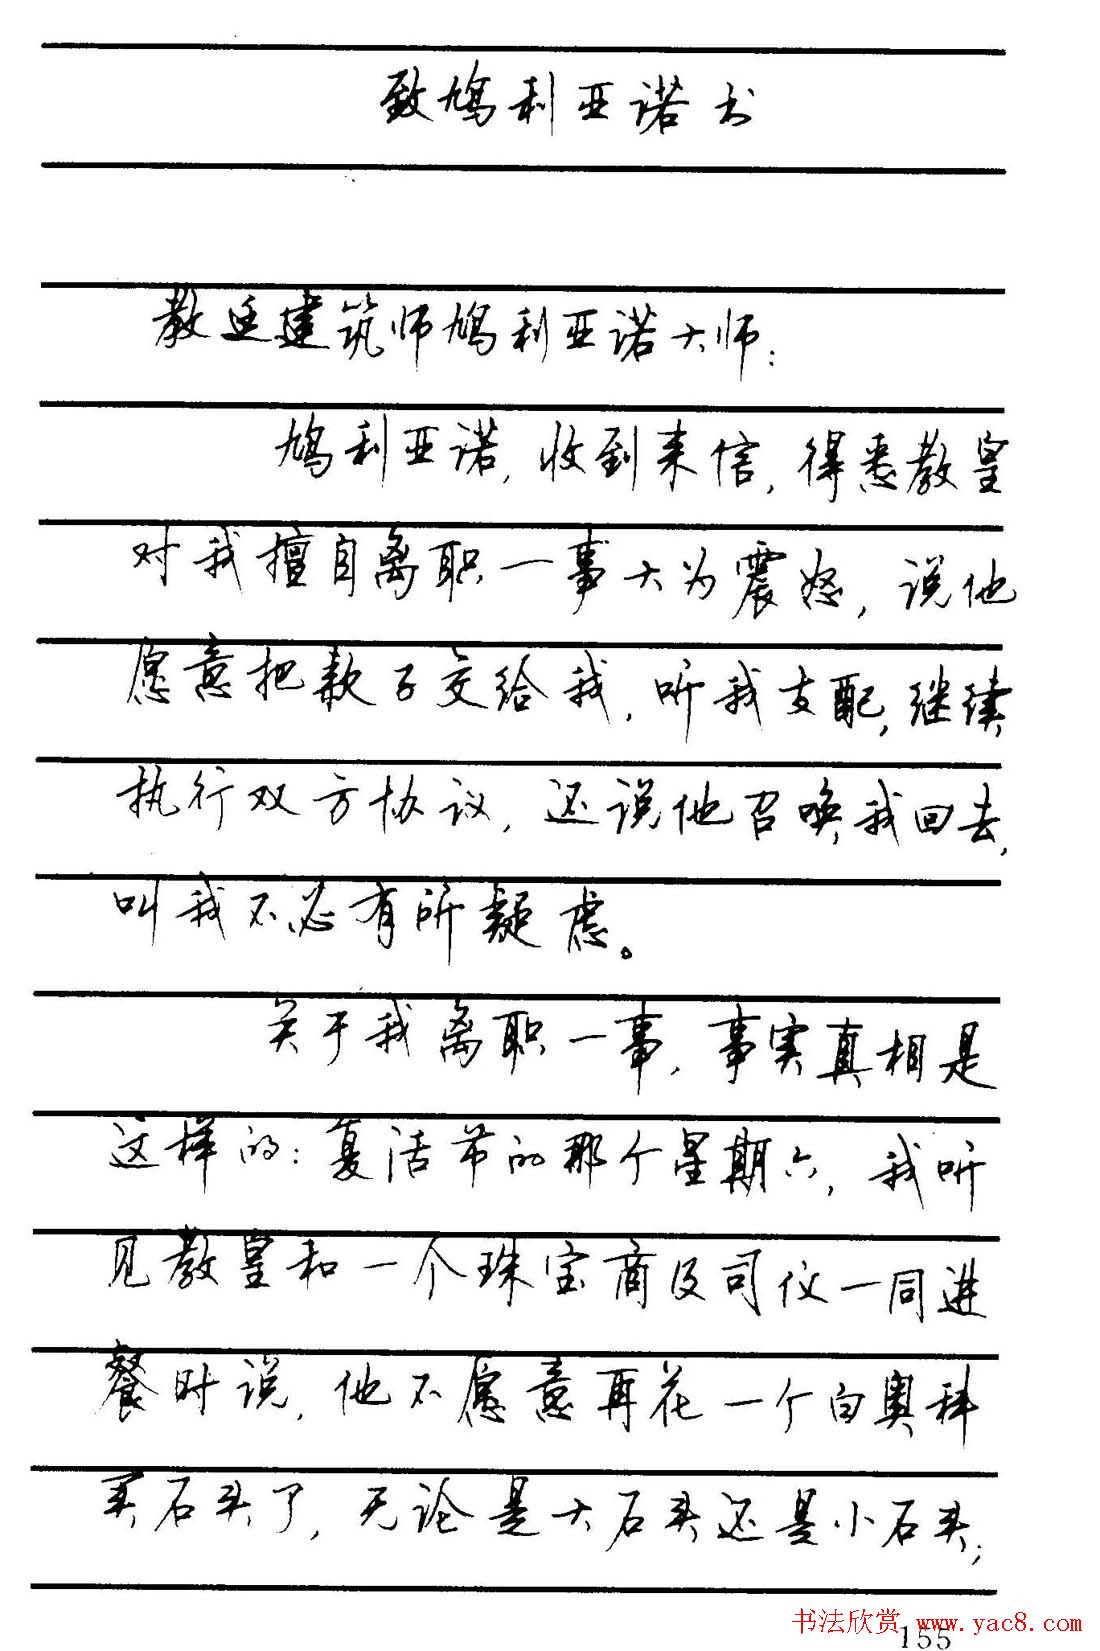 致鸠利亚诺书
教廷建筑师鸠利亚诺大师:
鸠利亚诺,收到来信,得悉教皇
对我擅自离职一事大为震怒,说他
愿意把款子交给我,听我支配,继续
执行双方协议,还说他召唤我回去,
叫我不必有所疑虑。
关于我离职一事,事实真相是
这样的:复活节的那个星期六,我听
见教皇和一个珠宝商及司仪一同进
餐时说,他不愿意再花一个白奥科
买石头了,无论是大石头还是小石头;
书法欣赏 www.yac8.com
155